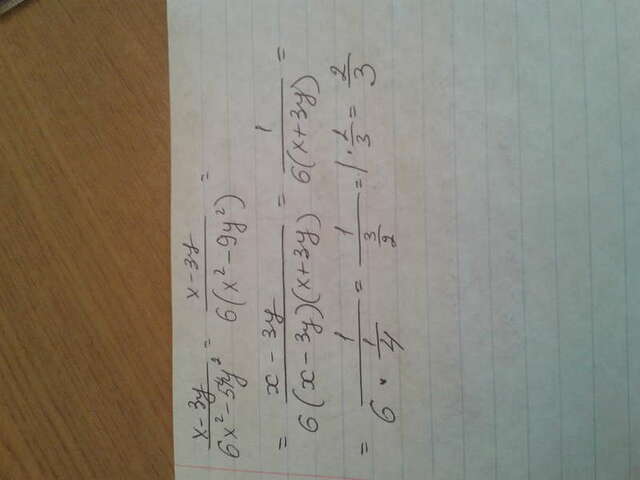 (x-3y)/(6x²-54y²) = (x-3y)/(6(x²-9y²)) =
= (x-3y)/(6(x-3y)(x+3y)) = 1/(6(x+3y)) =
= 1/(6·1/4) = 1/(3/2) = 1·2/3 = 2/3